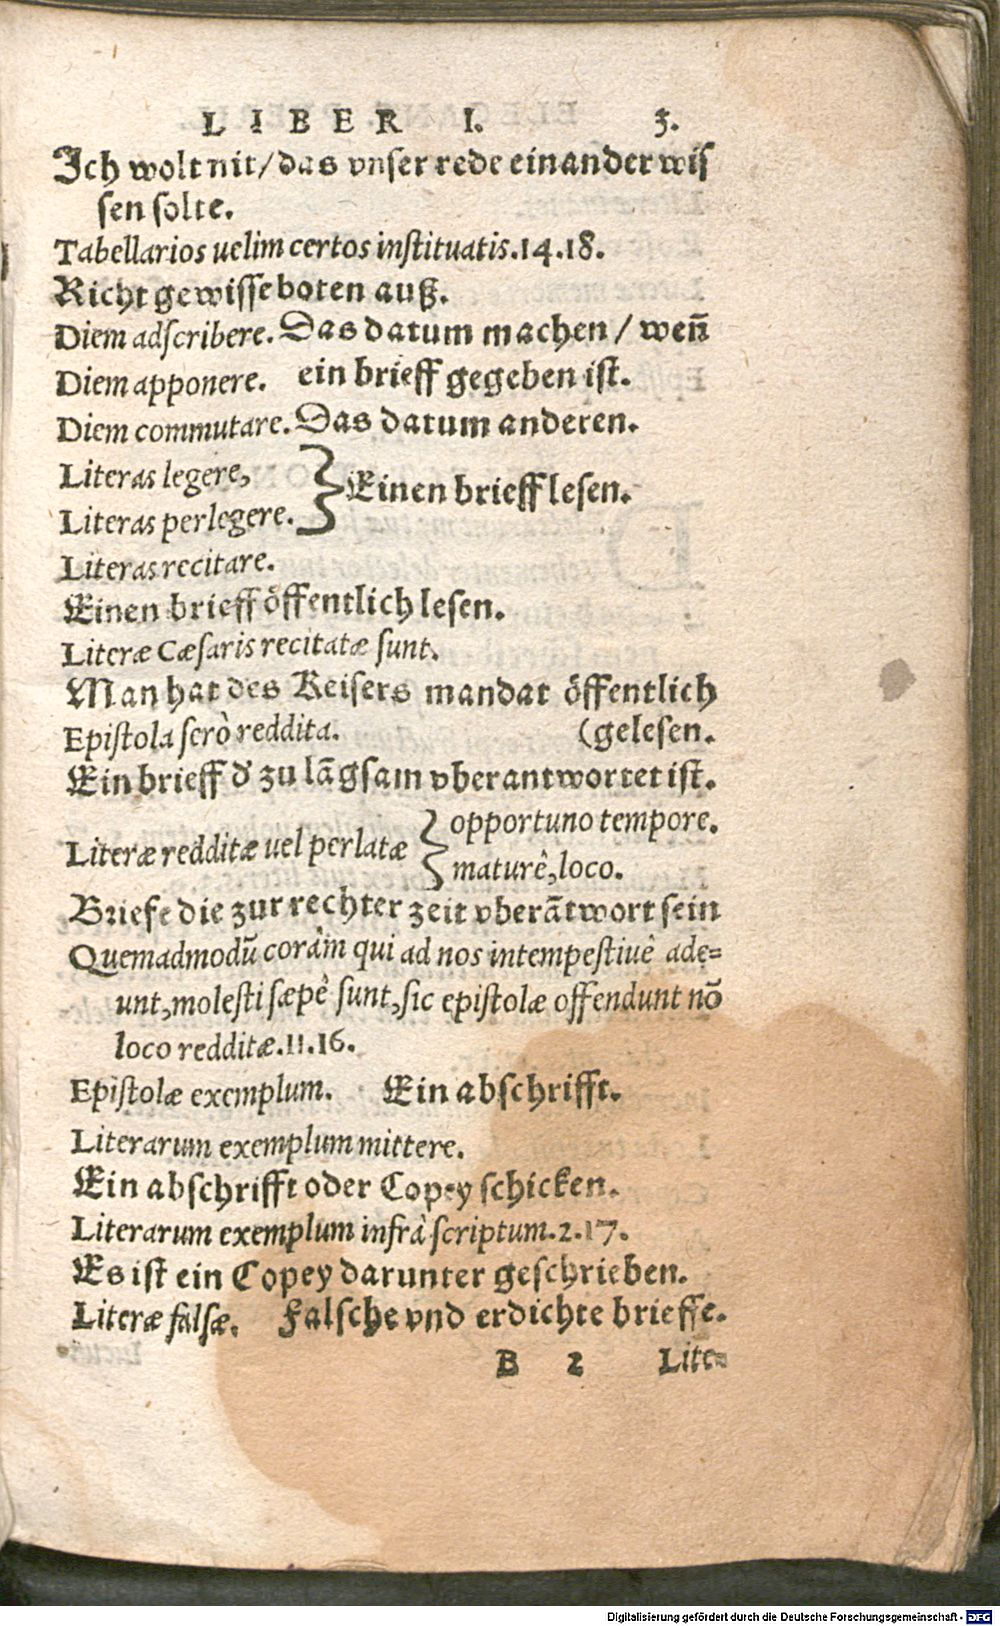 LIBER I. 3.
Ich wolt nit/das vnser rede einander wis
sen solte.
Tabellarios uelim certos instituatis.14.18.
Richt gewisse boten auß.
Diem adscribere. Das datum machen / weñ
Diem apponere. ein brieff gegeben ist.
Diem commutare. Das datum anderen.
Literas legere,
Literas perlegere. } Einen brieff lesen.
Literas recitare.
Einen brieff öffentlich lesen.
Literæ Cæsaris recitatæ sunt.
Man hat des Keisers mandat öffentlich
Epistola serò reddita. (gelesen.
Ein brieff d' zu lãgsam vberantwortet ist.
Literæ redditæ uel perlatæ } opportuno tempore.
maturè, loco.
Briefe die zur rechter zeit vberãtwort sein
Quemadmodũ coràm qui ad nos intempestiuè ade=
unt, molesti sæpè sunt, sic epistolæ offendunt nõ
loco redditæ.11.16.
Epistolæ exemplum. Ein abschrifft.
Literarum exemplum mittere.
Ein abschrifft oder Copey schicken.
Literarum exemplum infrà scriptum.2.17.
Es ist ein Copey darunter geschrieben.
Literæ falsæ. Falsche vnd erdichte brieffe.
B 2 Lite=
Digitalisierung gefördert durch die Deutsche Forschungsgemeinschaft - DFG